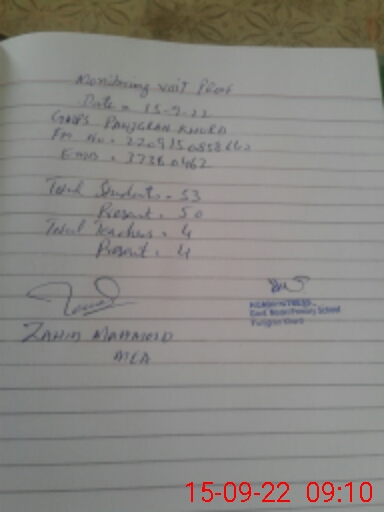 Monitoring visit Proof
Date = 15-9-22
GMPS PANJGRAN KHURD
Total Students = 53
Present = 50
Total Teachers = 4
Present = 4
ZAHID MAHMOOD
MEA
HEADMISTRESS
Govt. Model Primary School
Panjgran Khurd
15-09-22 09:10